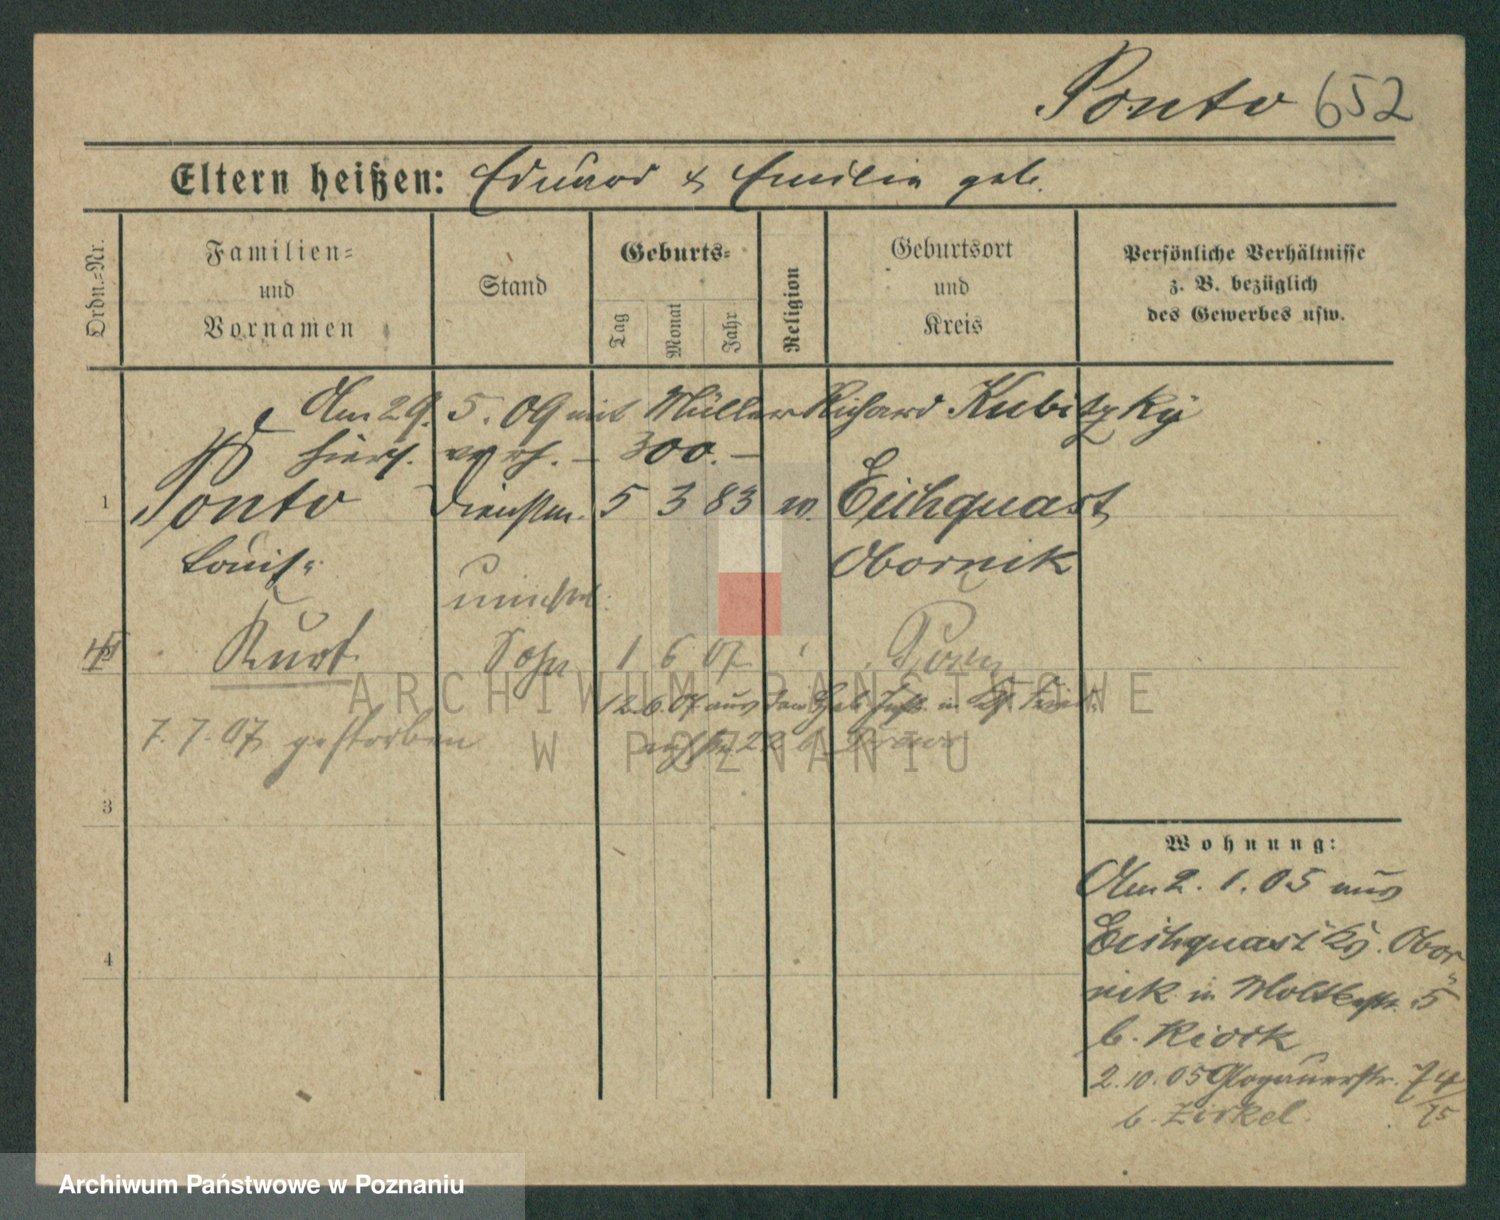 Ponto 652
Eltern heißen: Eduard & Emilie geb.
Ordn.=Nr.
Familien=
und
Vornamen
Stand
Geburts=
Tag
Monat
Jahr
Religion
Geburtsort
und
Kreis
Persönliche Verhältnisse
z. B. bezüglich
des Gewerbes usw.
Am 29. 5. 09 mit Müller Richard Kubitzky
hiers. verh. – 300. –
1 Ponto Dienstm. 5 3 83 Eichquast
Louise Obornik
unehel.
Kurt Sohn 1 6 07 Posen
12.6.07 aus
7. 7. 07 gestorben
3
4
Wohnung:
Am 2. 1. 05 aus
Eichquast Kr. Obor-
nik in Moltkestr. 5
b. Kiock
2.10.05 Glogauerstr. 74/75
b. Zirkel.
ARCHIWUM PAŃSTWOWE
W POZNANIU
Archiwum Państwowe w Poznaniu